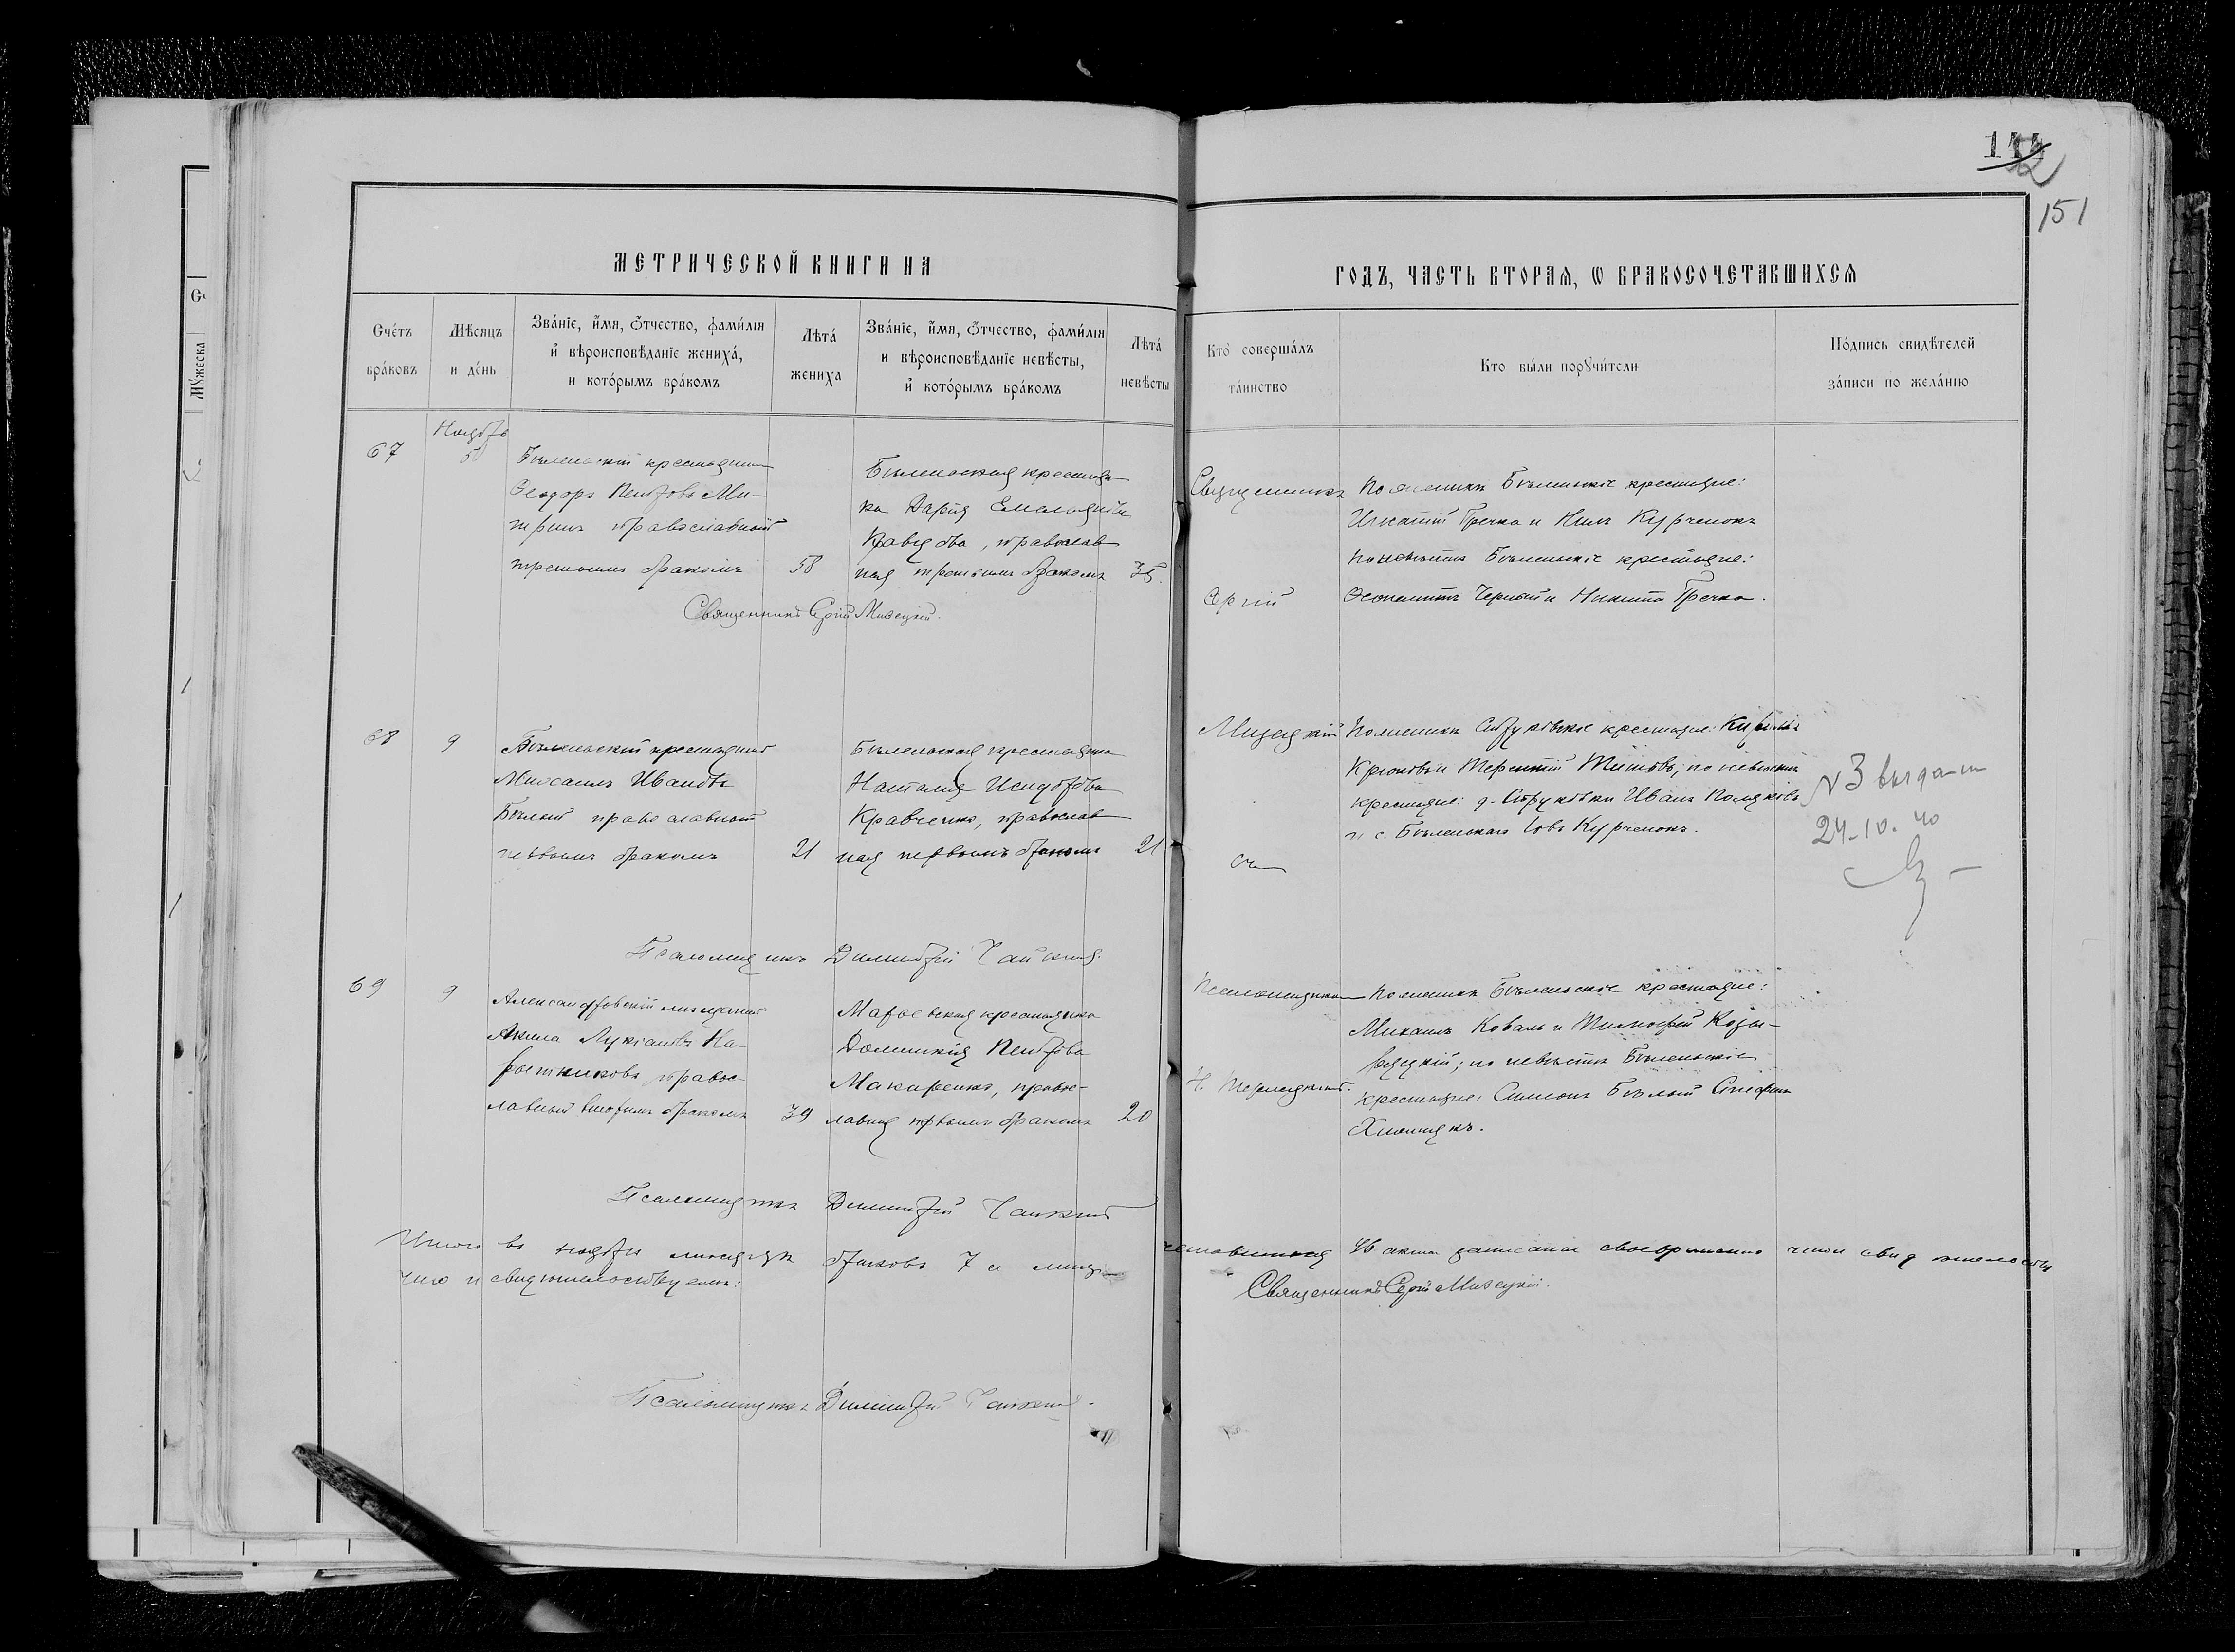 144
2
151
МЕТРИЧЕСКОЙ КНИГИ НА
ГОДЪ, ЧАСТЬ ВТОРАѦ, Ѡ БРАКОСОЧЕТАВШИХСѦ
Счетъ браковъ
Мѣсяцъ и день
Званіе, имя, отчество, фамилія
и вѣроисповѣданіе жениха,
и которымъ бракомъ
Лѣта жениха
Званіе, имя, отчество, фамилія
и вѣроисповѣданіе невѣсты,
и которымъ бракомъ
Лѣта невѣсты
Кто совершалъ таинство
Кто были поручители
Подпись свидѣтелей
записи по желанію
67
Ноября
5
Бѣленскій крестьянинъ
Ѳеодоръ Петровъ Ми-
православный
третьимъ бракомъ
58
Бѣленская крестьян-
ка Дарія
Кравцова, православ
ная третьимъ бракомъ
35.
Священникъ
Сергій
По женихѣ Бѣленскіе крестьяне:
Игнатій Гречка и Нилъ Курченокъ
по невѣстѣ Бѣленскіе крестьяне:
Черный и Никита Гречка.
Священникъ Сергій Мизецкій.
68
9
Бѣленскій крестьянинъ
Михаилъ Ивановъ
Бѣлый православный
первымъ бракомъ
21
Бѣленская крестьянка
Наталія Исидорова
Кравченко, православ
ная первымъ бракомъ
21
Мизецкій
съ
По женихѣ Струковскіе крестьяне: Кириллъ
Крюковъ и Терентій Титовъ; по невѣстѣ
крестьяне: д. Струковки Иванъ Поляковъ
и с. Бѣленскаго Іовъ Курченокъ.
№ 3 выдан
24-10.40
Псаломщикъ Димитрій Чайкинъ
69
9
Александровскій мѣщанинъ
Акила Лукіановъ
правос-
лавный вторымъ бракомъ
39
Марьевская крестьянка
Домникія Петрова
Макаренко, правос-
лавная первымъ бракомъ
20
Псаломщикомъ
По женихѣ Бѣленскіе крестьяне:
Михаилъ Коваль и Тимофей Козы-
рецкій; по невѣстѣ Бѣленскіе
крестьяне: Симеонъ Бѣлый Стефанъ
Псаломщикъ Димитрій Чайкинъ
Итого въ ноябрѣ мѣсяцѣ браковъ 7 и
46 акта записаны своевременно
что и свидѣтельствуемъ:
Священникъ Сергій Мизецкій.
Псаломщикъ Димитрій Чайкинъ.